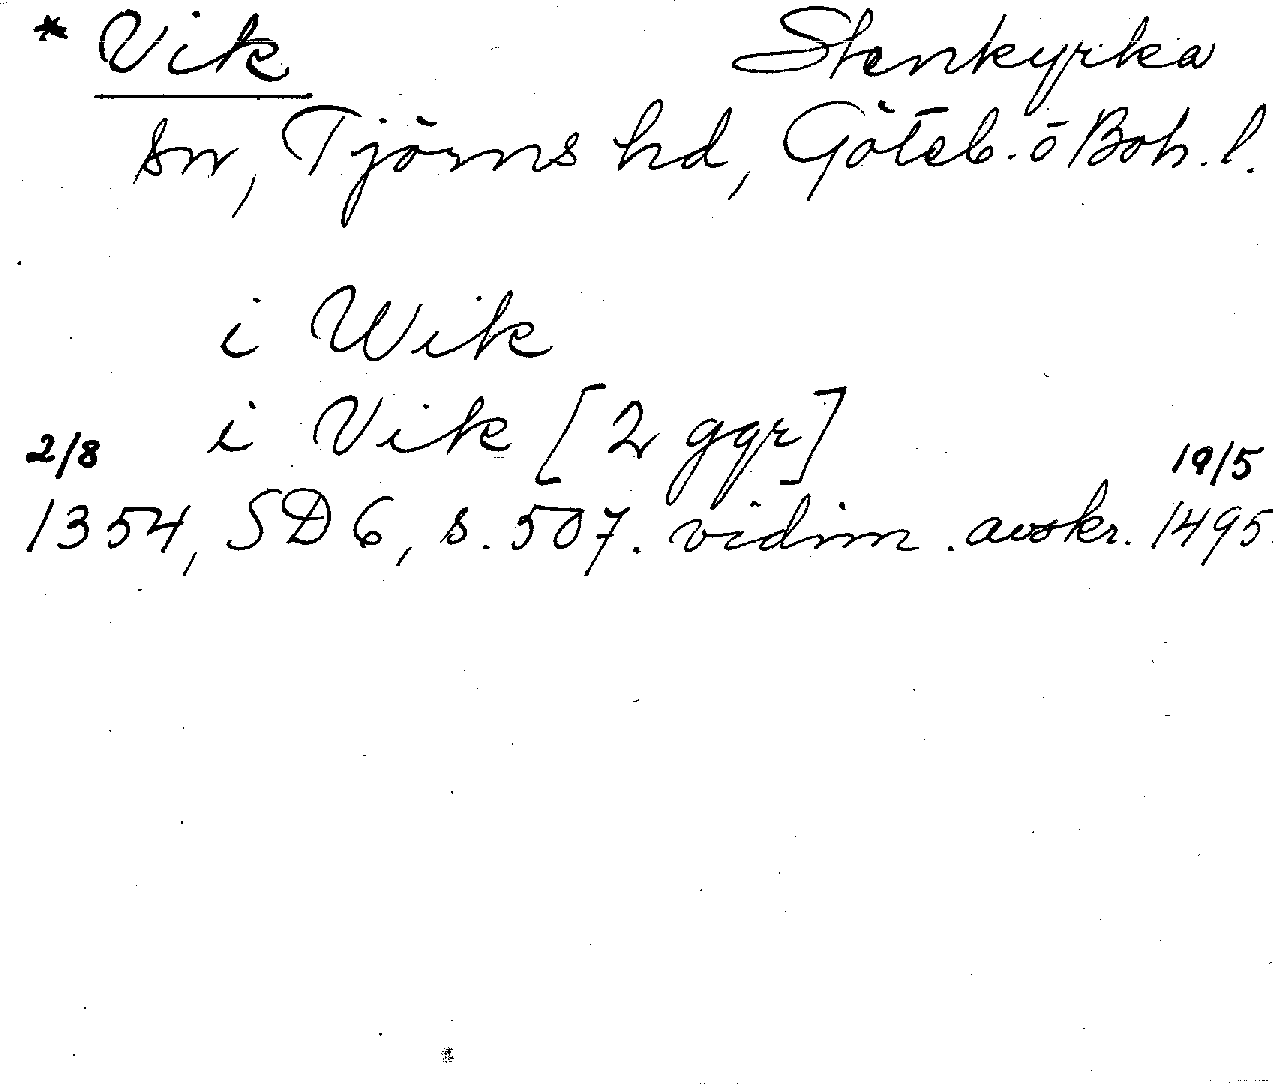 * Vik Stenkyrka
sn, Tjörns hd, Göteb. o Boh. l.
i Wik
i Vik [2 ggr]
2/8 19/5
1354, SD 6, s. 507. vidim. avskr. 1495.